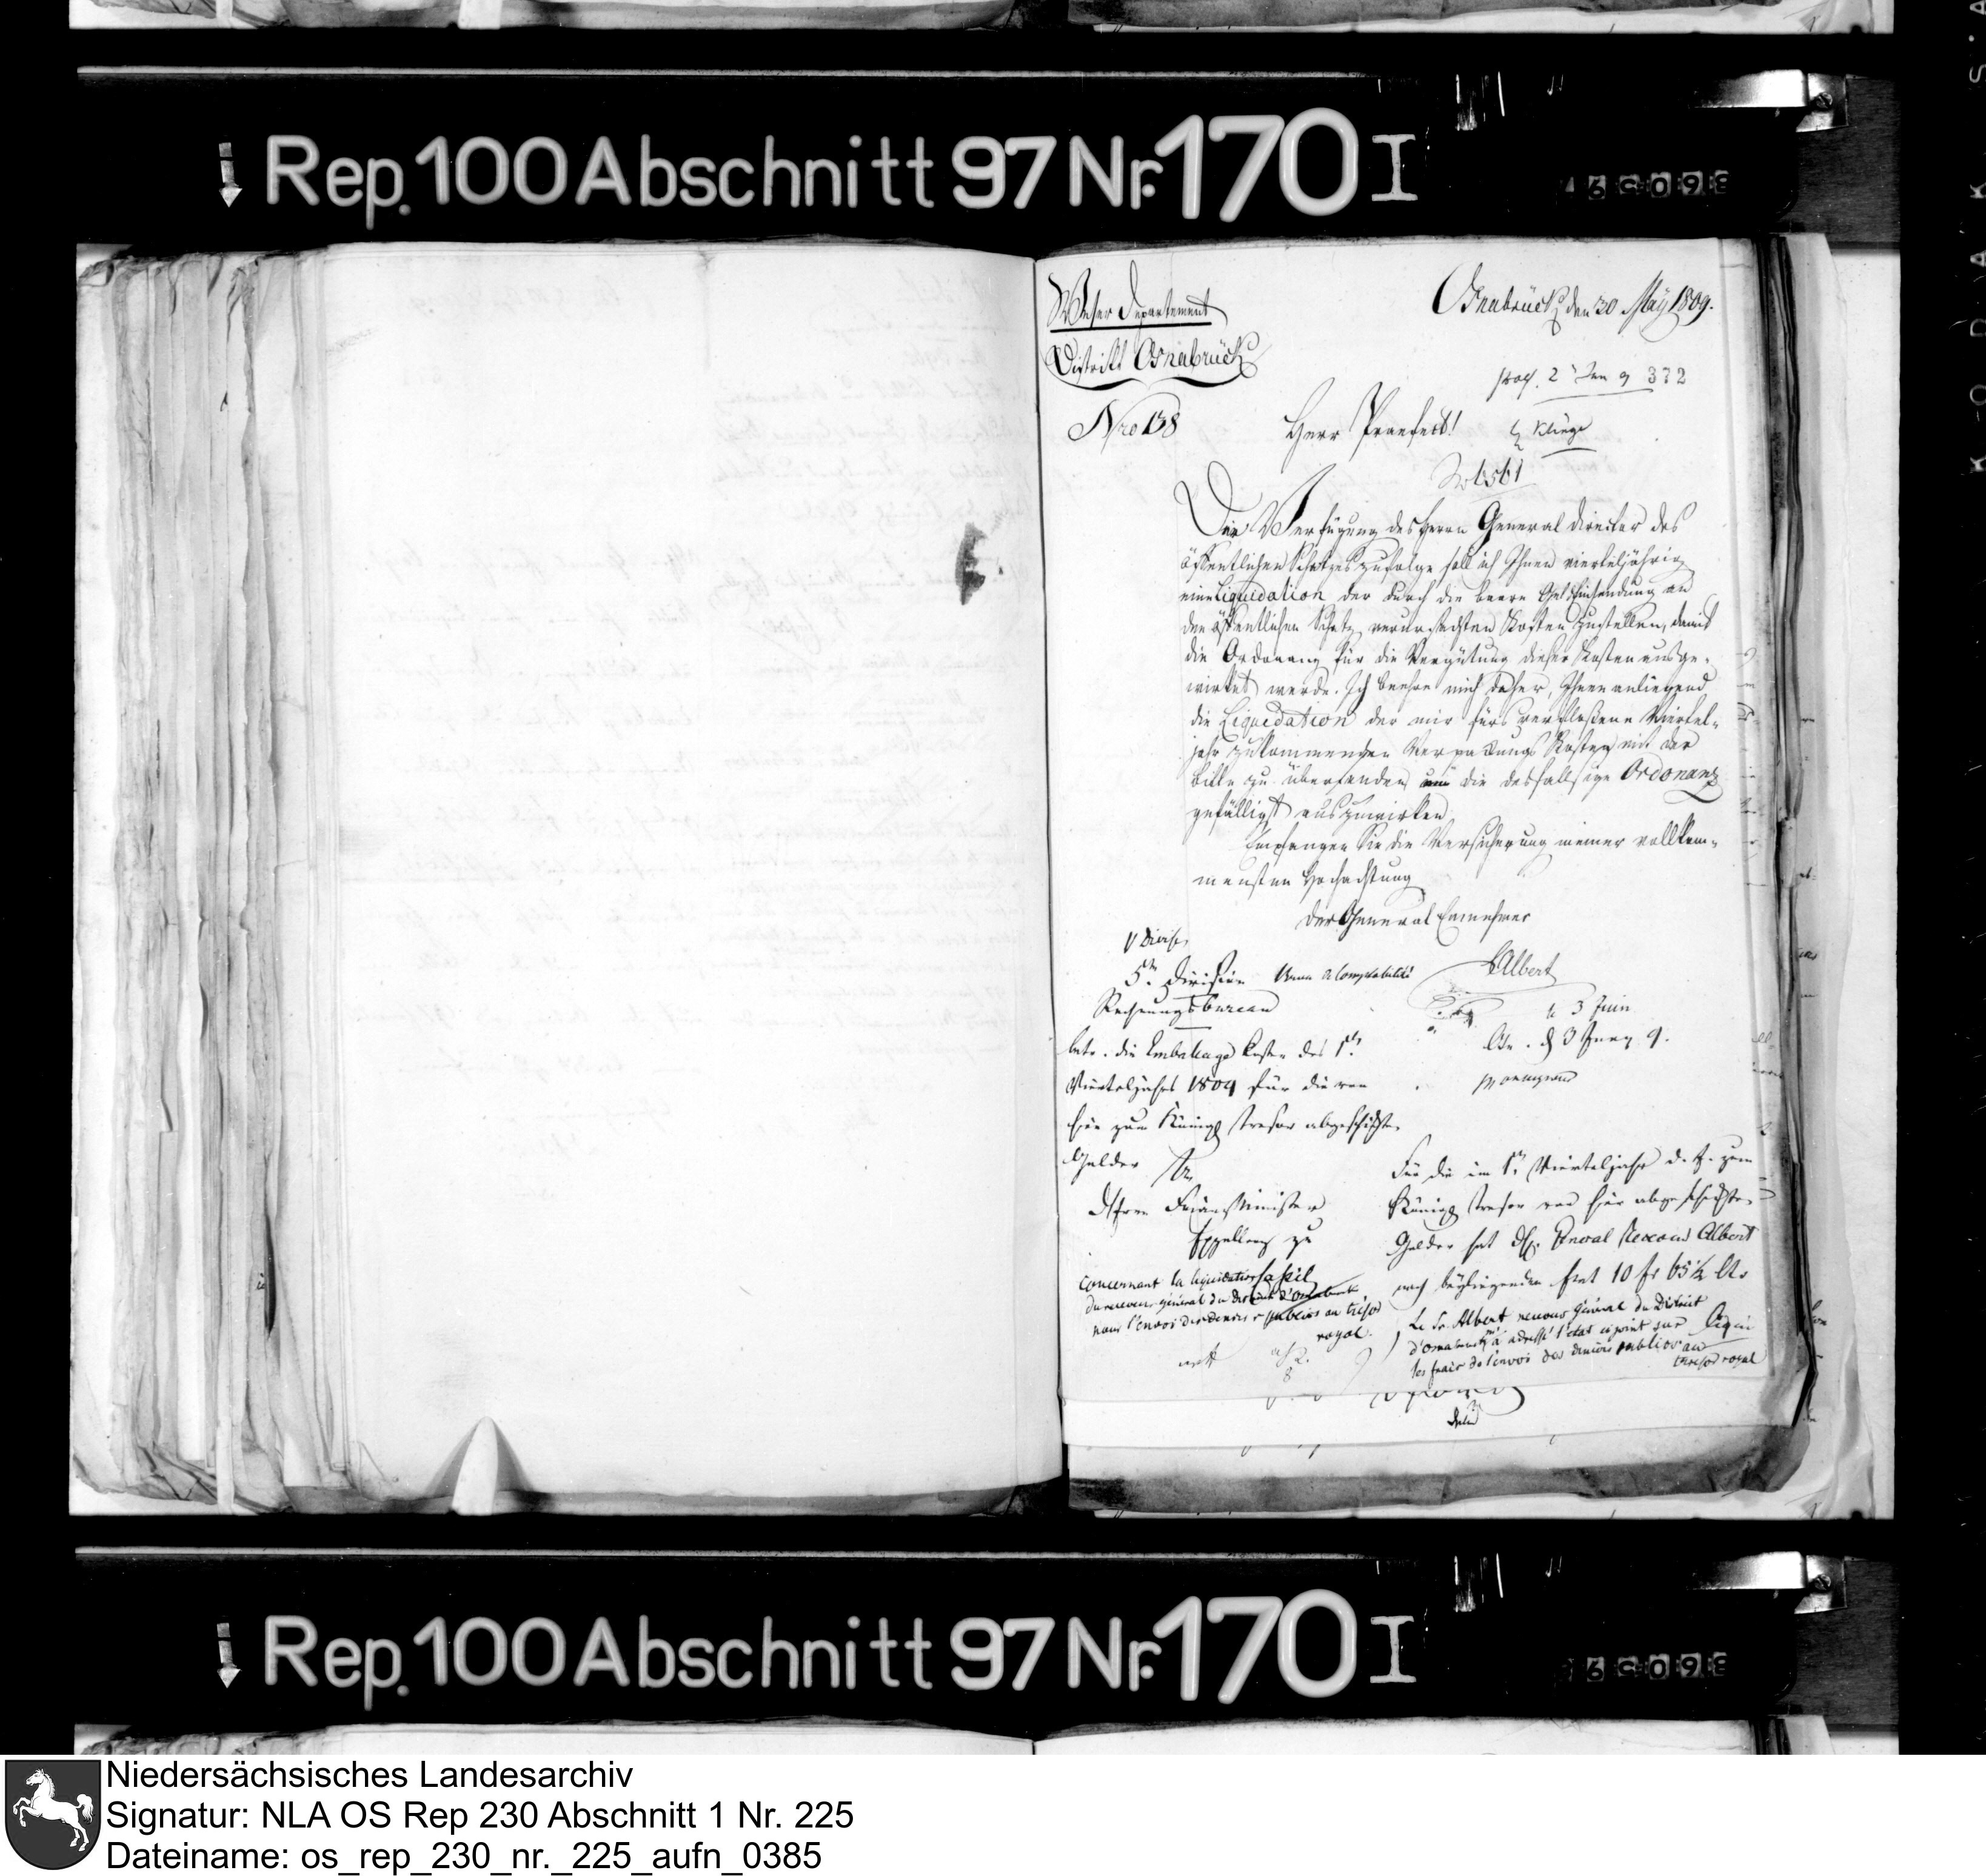 Rep. 100 Abschnitt 97 Nr. 170 I
Weser Departement
District Osnabrück
Osnabrück den 30 May 1809.
372
Nro 138
Herr Praefect!
Die Verfügung des Herrn General Director des
öffentlichen Schatzes zufolge soll ich Ihnen vierteljährig
eine Liquidation der durch die baare Geldeinsendung an
den öffentlichen Schatz verursachten Kosten zustellen, damit
die Ordonanz für die Vergütung dieser Kosten ausge-
wirket werde. Ich beehre mich daher, Ihnen anliegend
die Liquidation der mir fürs verflossene Viertel-
jahr zukommenden Verpackungs Kosten mit der
Bitte zu übersenden, um die desfallsige Ordonanz
gefälligst auszuwirken.
Empfangen Sie die Versicherung meiner vollkom-
mensten Hochachtung
Der General Einnehmer
Albert
V Divis.
5te Division
Rechnungsbureau
betr. die Emballage Kosten des 1ten
Vierteljahrs 1809 für die von
hier zum Königl tresor abgeschickten
Gelder
3 Juin
An
Herrn Finanz Minister
Für die im 1ten Vierteljahr d. J. zum
Königl tresor von hier abgeschickten
Gelder hat H. General Receveur Albert
10 fr 65½ Cts
concernant la liquidation
du receveur général du District d'Osnabruck
pour l'envoi des deniers publics au trésor
royal.
Le Sr. Albert receveur général du District
d'Osnabruck m'a adressé l'état cijoint sur
les frais de l'envoi des deniers publics au
tresor royal
Rep. 100 Abschnitt 97 Nr. 170 I
Niedersächsisches Landesarchiv
Signatur: NLA OS Rep 230 Abschnitt 1 Nr. 225
Dateiname: os_rep_230_nr._225_aufn_0385